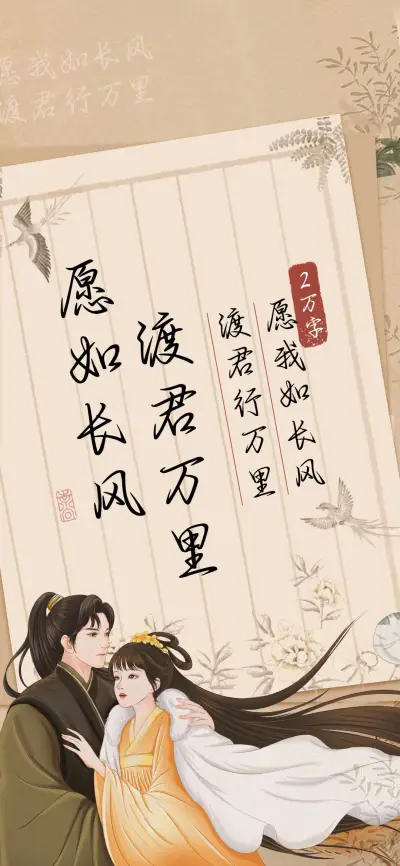 愿我如长风
渡君行万里
愿如长风
渡君万里
2万字
愿我如长风
渡君行万里